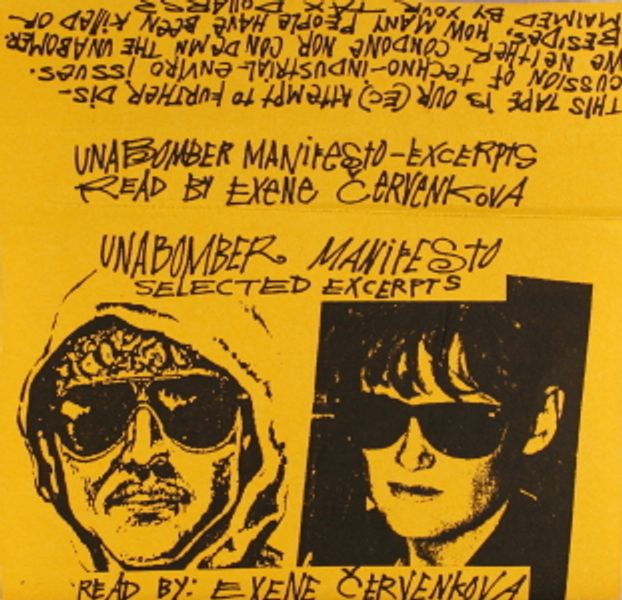 THIS TAPE IS OUR (EC) ATTEMPT TO FURTHER DIS-
CUSSION OF TECHNO-INDUSTRIAL-ENVIRO ISSUES.
WE NEITHER CONDONE NOR CONDEMN THE UNABOMER.
BESIDES, HOW MANY PEOPLE HAVE BEEN KILLED OR
MAIMED BY YOUR TAX DOLLARS
UNABOMBER MANIFESTO-EXCERPTS
READ BY EXENE ČERVENKOVA
UNABOMBER MANIFESTO
SELECTED EXCERPTS
READ BY: EXENE ČERVENKOVA